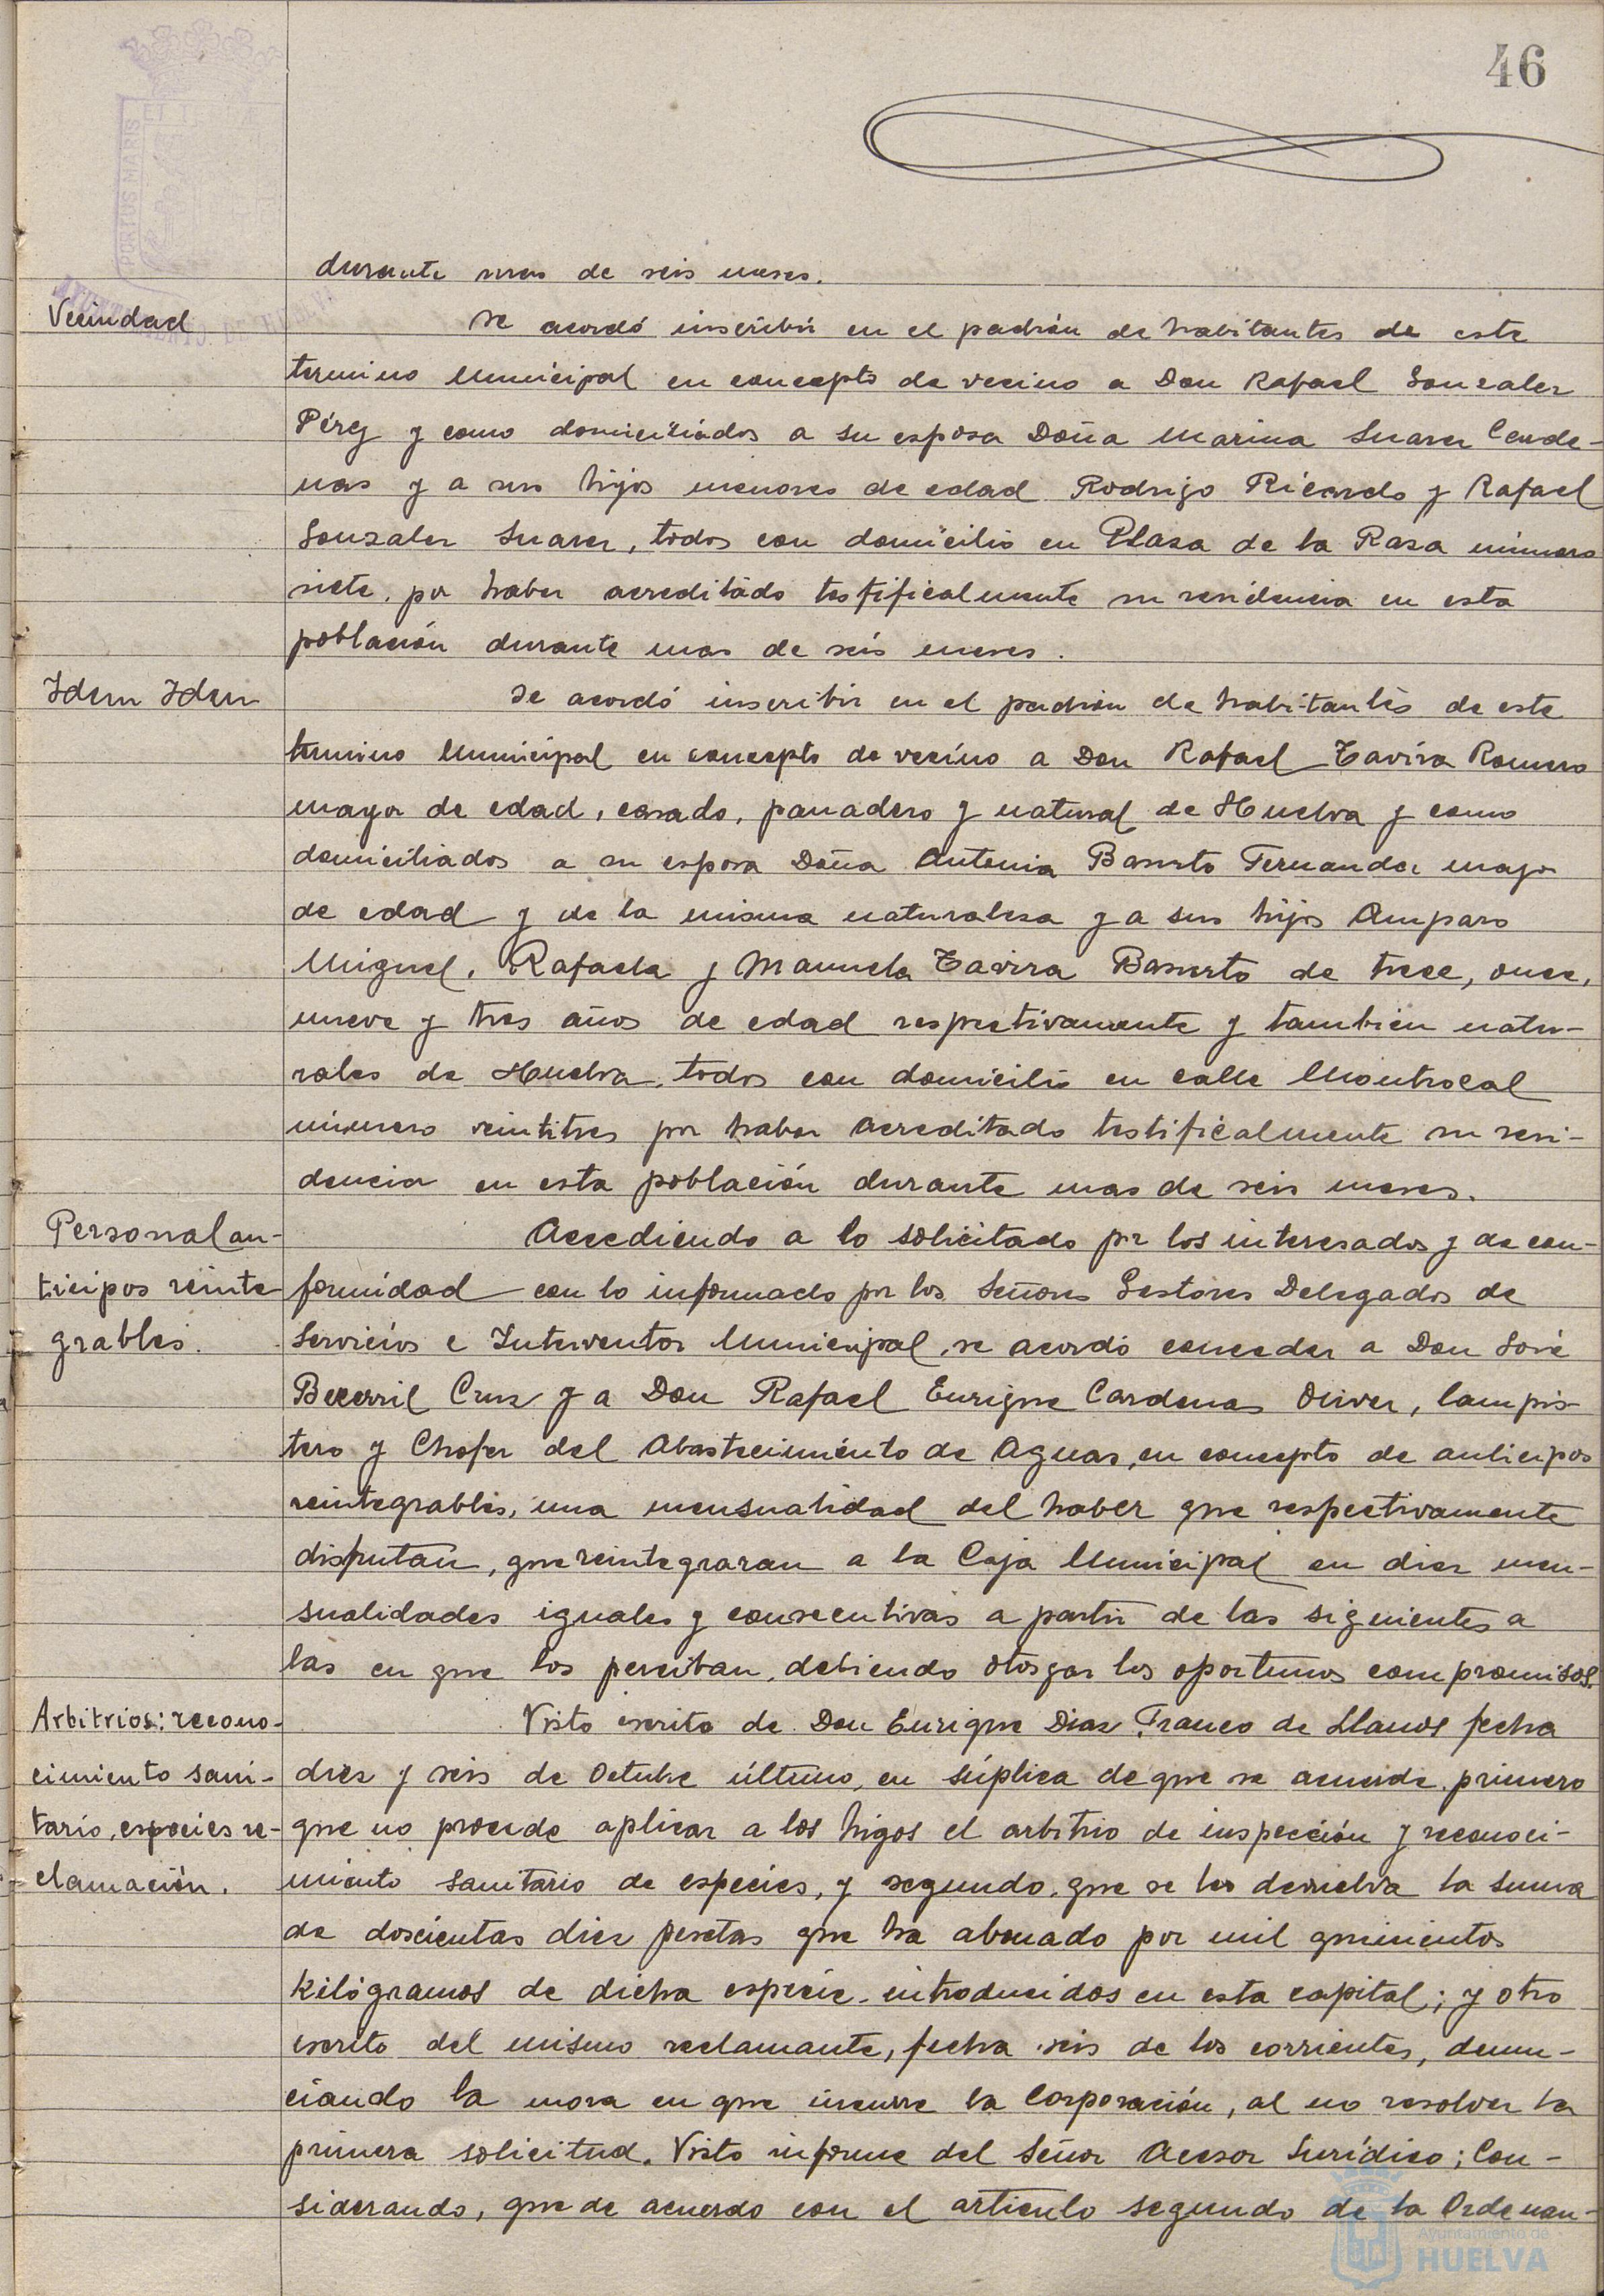 46
durante mas de seis meses.
Vecindad
Se acordó inscribir en el padrón de habitantes de este
termino Municipal en concepto de vecino a Don Rafael Gonzalez
Pérez y como domiciliados a su esposa Doña Marina Suarez Carde-
nas y a sus hijos menores de edad Rodrigo Ricardo y Rafael
Gonzalez Suarez, todos con domicilio en Plaza de la Raza número
siete, por haber acreditado testificalmente su residencia en esta
población durante mas de seis meses.
Idem Idem
Se acordó inscribir en el padrón de habitantes de este
termino Municipal en concepto de vecino a Don Rafael Tavira Romero
mayor de edad, casado, panadero y natural de Huelva y como
domiciliados a su esposa Doña Antonia Basurto Fernandez mayor
de edad y de la misma naturaleza y a sus hijos Amparo
Miguel, Rafaela y Manuela Tavira Basurto de trece, once,
nueve y tres años de edad respectivamente y tambien natu-
rales de Huelva, todos con domicilio en calle Montrocal
número veintitres por haber acreditado testificalmente su resi-
dencia en esta población durante mas de seis meses.
Personal an-
ticipos reinte-
grables.
Accediendo a lo solicitado por los interesados y de con-
formidad con lo informado por los Señores Gestores Delegados de
Servicios e Interventor Municipal, se acordó conceder a Don José
Becerril Cruz y a Don Rafael Enrique Cardenas Oliver, lampis-
tero y Chofer del Abastecimiento de Aguas, en concepto de anticipos
reintegrables, una mensualidad del haber que respectivamente
disfrutan, que reintegraran a la Caja Municipal en diez men-
sualidades iguales y consecutivas a partir de las siguientes a
las en que los perciban, debiendo otorgar los oportunos compromisos.
Arbitrios: recono-
cimiento sani-
tario, especies re-
clamación.
Visto escrito de Don Enrique Diaz Franco de Llanos fecha
diez y seis de Octubre último, en súplica de que se acuerde, primero
que no procede aplicar a los higos el arbitrio de inspección y reconoci-
miento sanitario de especies, y segundo, que se les devuelva la suma
de doscientas diez pesetas que ha abonado por mil quinientos
Kilógramos de dicha especie introducidos en esta capital; y otro
escrito del mismo reclamante, fecha seis de los corrientes, denun-
ciando la mora en que incurre la Corporación, al no resolver la
primera solicitud. Visto informe del Señor Acesor Jurídico; Con-
siderando, que de acuerdo con el articulo segundo de la Ordenan-
PORTUS MARIS
Ayuntamiento de
HUELVA